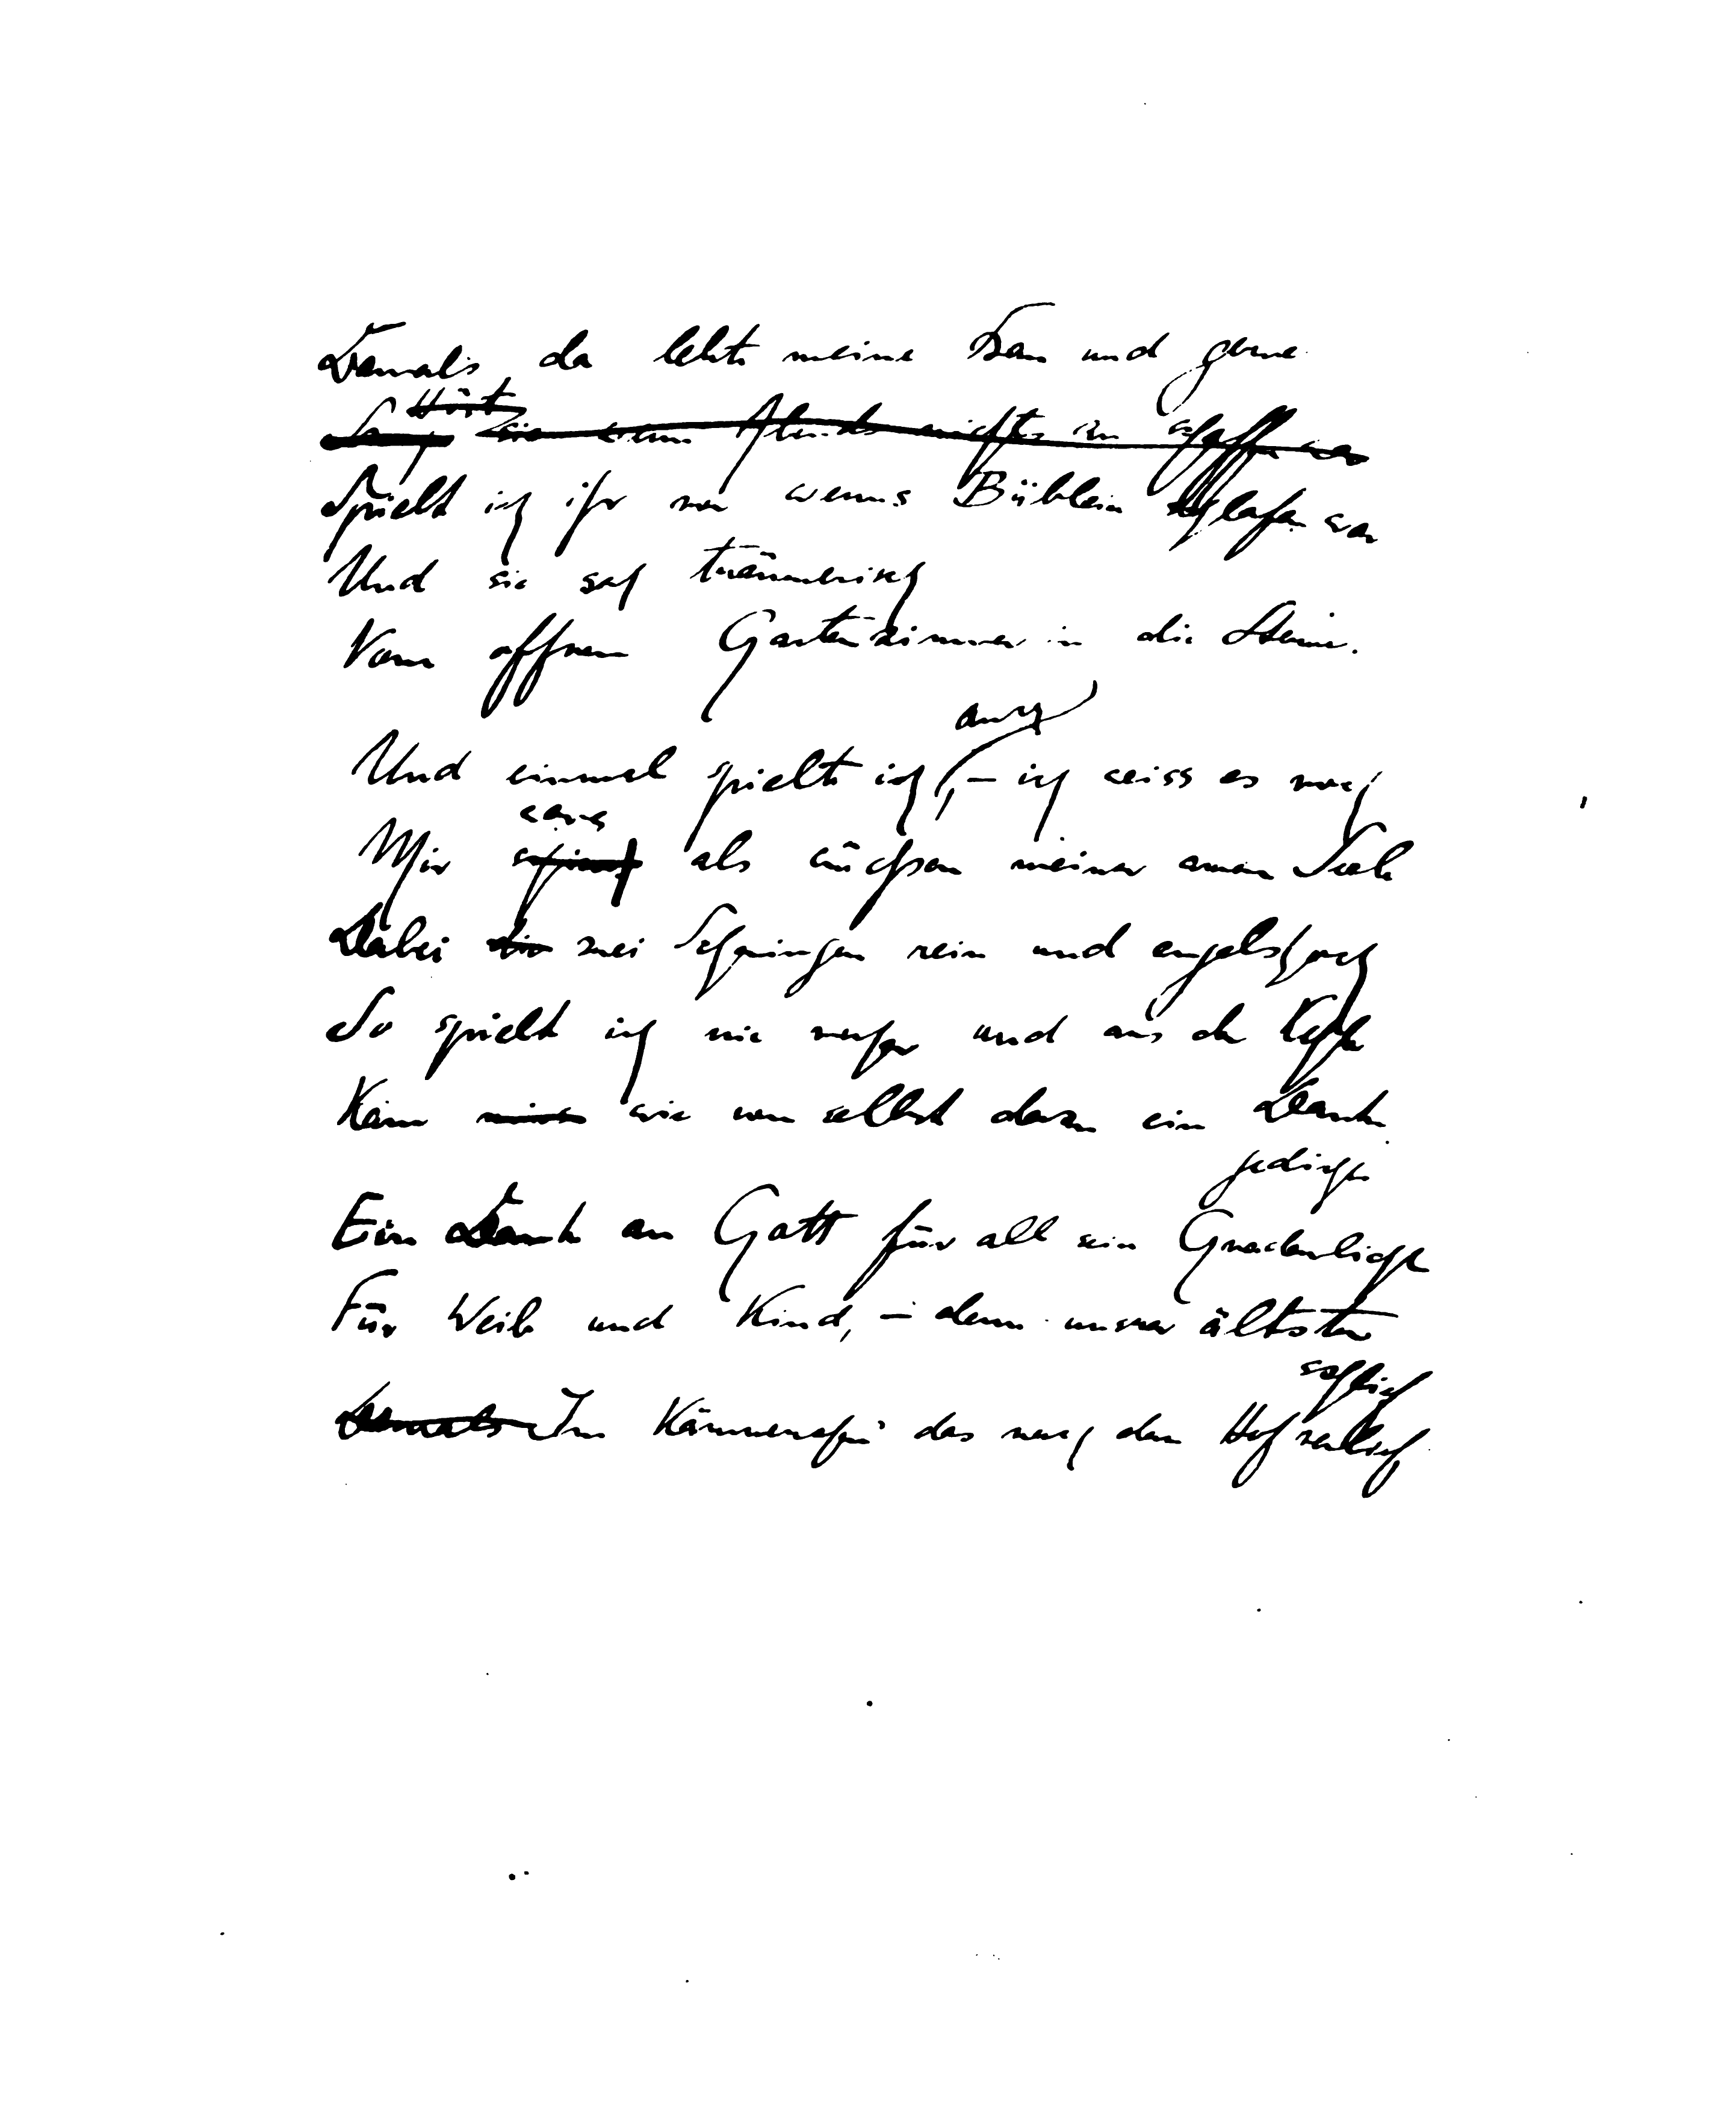 Damals da lebte meine Frau und gerne
Hört
Sang sie wenn Abends nichts zu schaffen war
Spielt ich ihr vor wenns Büblein schlafen war
Und sie sah träumerisch
Vom offnen Gartenzimmer in die Sterne.
auch
Und einmal spielte ich, – ich weiss es noch
wars
Mir schien als wüchsen meiner armen Seele
Dabei die zwei Schwingen rein und engelshoch
So spielt ich nie vorher und aus der Kehle
Kam mir wie von selbst dazu ein Dank
gedicht
Ein Dank an Gott für all sein Gnadenlicht
Für Weib und Kind, – denn unser ältester
schlief
Damals Im Kämmerchen das nach dem Hof